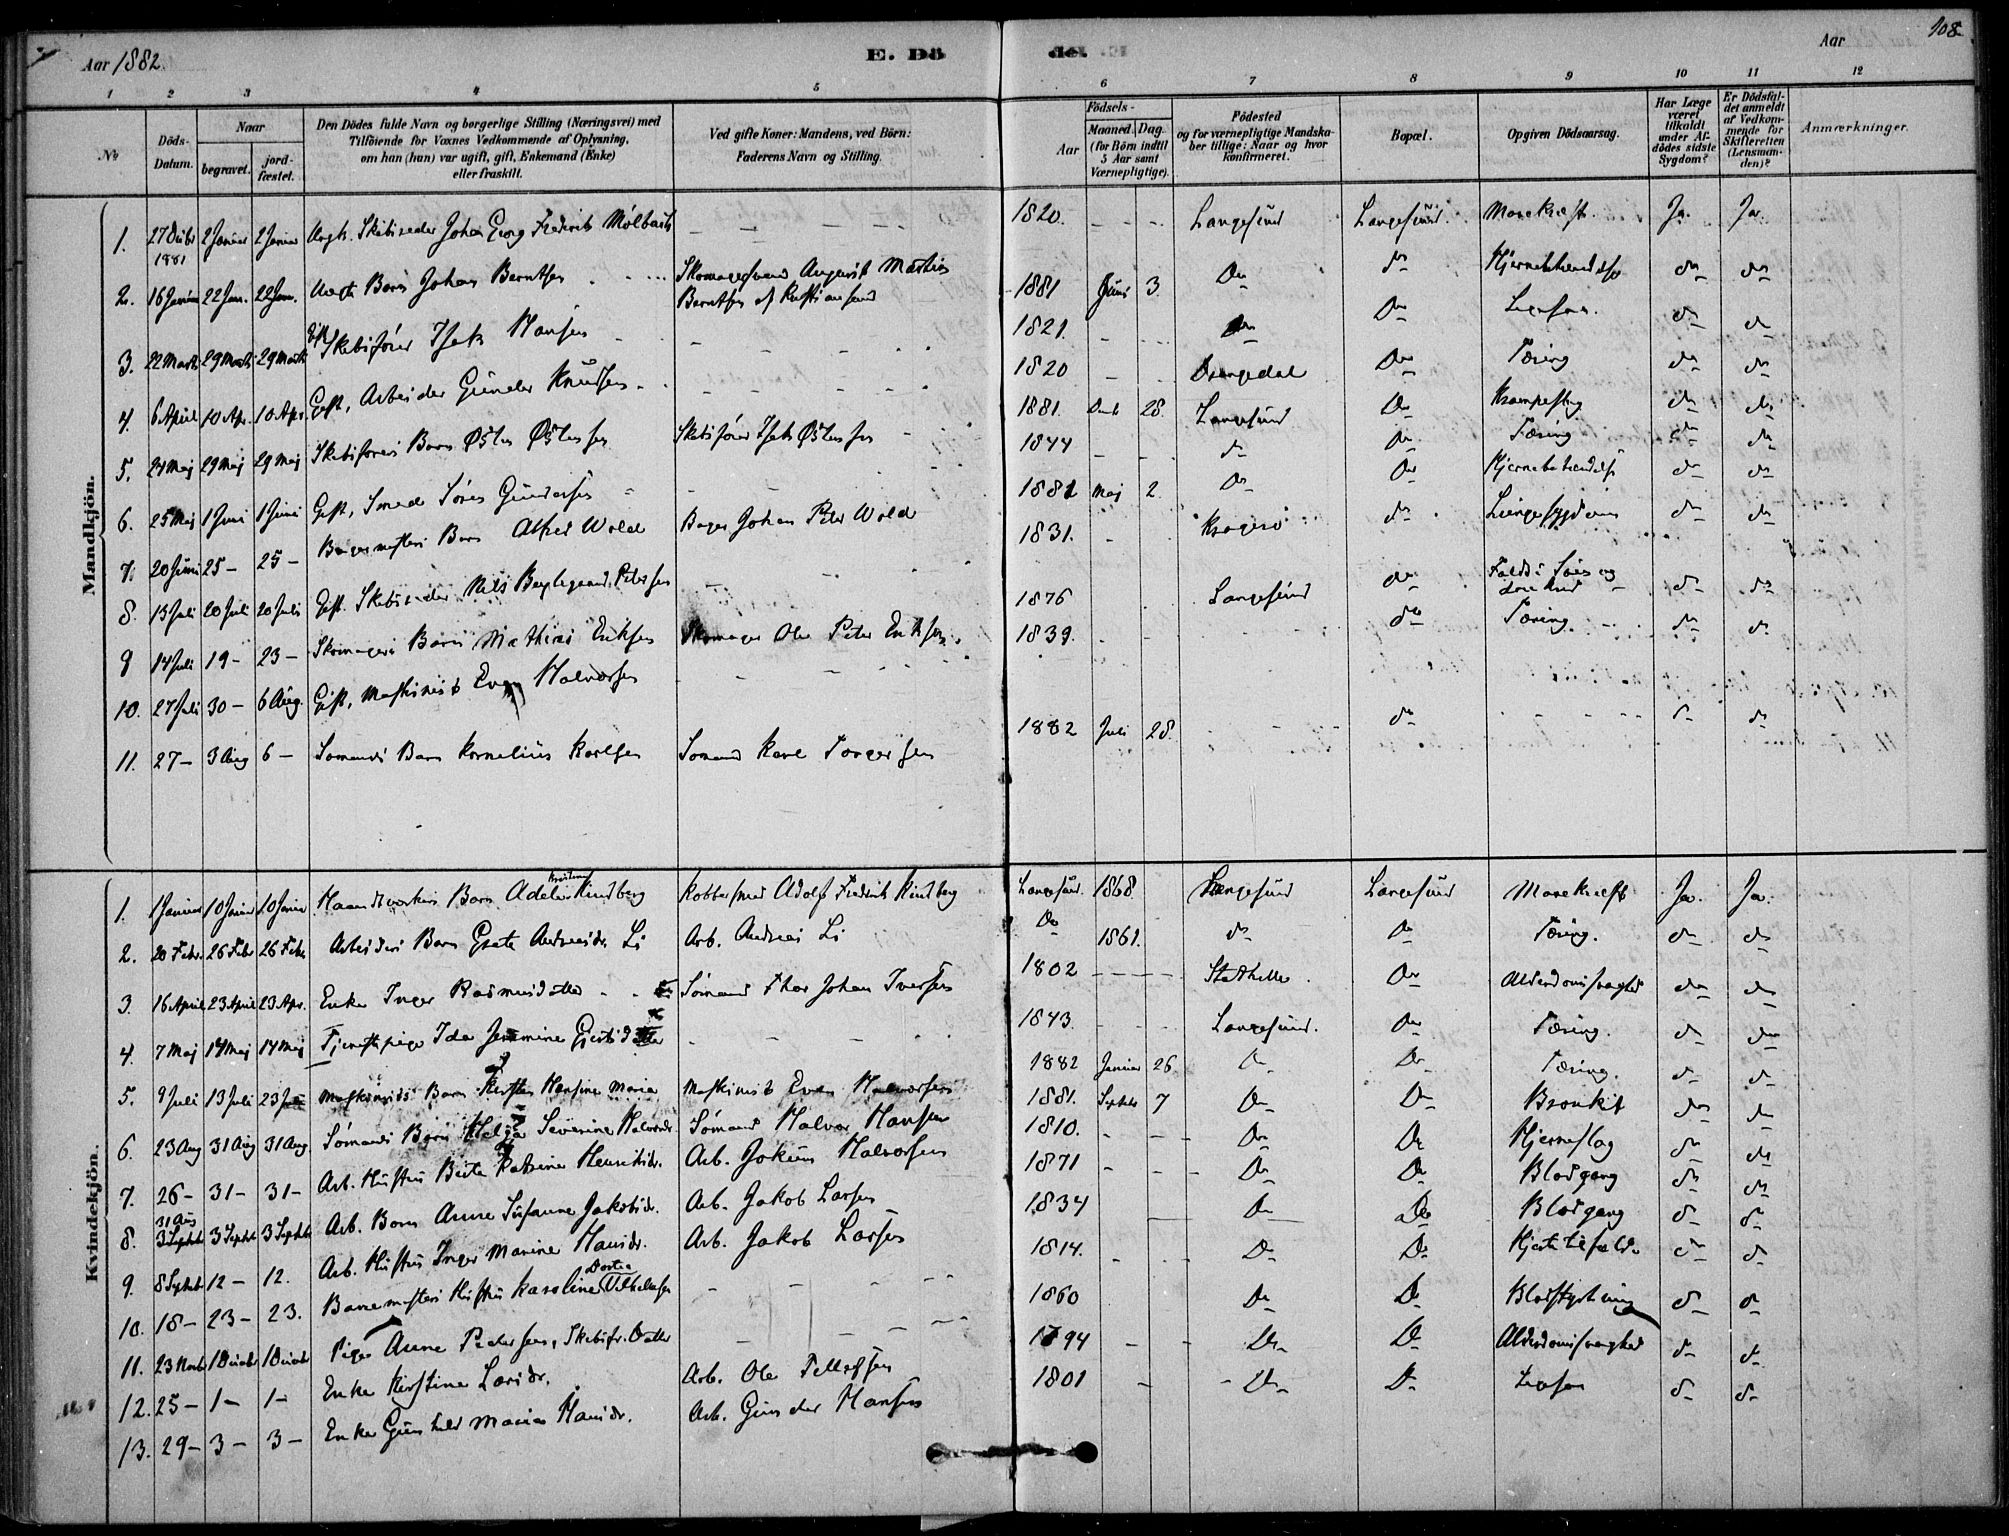 Aar 1882.
E. Dö
de.
Aar
108
1 2 3 4 5 6 7 8 9 10 11 12
No
Döds-Datum.
Naar
begravet.
jord-fæstet.
Den Dödes fulde Navn og borgerlige Stilling (Næringsvei) med
Tilföiende for Voxnes Vedkommende af Oplysning,
om han (hun) var ugift, gift, Enkemand (Enke)
eller fraskilt.
Ved gifte Koner: Mandens, ved Börn:
Faderens Navn og Stilling.
Födsels-
Aar
Maaned. Dag.
(for Börn indtil
5 Aar samt
Værnepligtige).
Födested
og for værnepligtige Mandska-
ber tillige: Naar og hvor
konfirmeret.
Bopæl.
Opgiven Dödsaarsag.
Har Læge
været
tilkaldt
under Af-
dödes sidste
Sygdom?
Er Dödsfal-
det anmeldt
af Vedkom-
mende for
Skifteretten
(Lensman-
den)?
Anmærkninger.
Mandkjön.
1. 27 1881 2 Januar 2 Januar Skibsreder Johan Georg Frederik Molbach 1820. Langesund Langesund. Marekræft. Ja. Ja.
2. 16 Januar 22 Jan. 22 Jan. Barn Johan Berntsen Skomagersvend August Martin
Berntsen af Kristiansund 1881 Juni 3. Do do Hjernebetændelse do do
3. 22 Marts 29 Marts 29 Marts Gift Skibsfører Isak Hansen 1821. Do Do do do
4. 6 April 10 Ap. 10 Apr. Gift, Arbeider Gunder Knudsen 1820 Drangedal Do Tæring do do
5. 24 Maj 29 Maj 29 Maj Skibsførers Barn Østen Østensen Skibsfører Isak Østensen 1881. 28. Langesund Do do do
6. 25 Maj 1 Juni 1 Juni Gift, Smed Søren Gundersen 1844 do do Tæring do do
7. 20 Juni 25 – 25 – Bagermesters Barn Alfred Wold Bager Johan Peter Wold 1882 Maj 2. Do Do Hjernebetændelse do do
8. 13 Juli 20 Juli 20 Juli Gift. Skibsreder Nils Petersen 1831. Kragerø do Lungesygdom do do
9 14 Juli 19 – 23 – Skomagers Barn Mathias Eriksen Skomager Ole Peter Eriksen. 1876 Langesund do Faldt i Søen og
druknet do do
10. 27 Juli 30 – 6 Aug. Gift, Maskinist Even Halvorsen 1839. do Tæring do do
11. 27 – 3 Aug 6 – Sømands Barn Kornelius Karlsen Sømand Karl Torgersen 1882 Juli 28. do do do
Kvindekjön.
1. 1 Januar 10 Januar 10 Januar Haandværkers Barn Kindberg Kobbersmed Adolf Fredrik Kindberg Langesund. 1868. Langesund Langesund Marekræft Ja. Ja.
2. 20 Febr. 26 Febr 26 Febr. Arbeiders Barn Grete Andreasdr. Li Arb. Andreas Li Do 1861. do Do Tæring. do do
3. 16 April 23 April 23 Apr. Enke Inger Rasmusdatter Sømand Thor Johan Iversen 1802 Stathelle Do Alderdomssvaghed do do
4. 7 Maj 14 Maj 14 Maj Tjenestepige Ida 1843. Langesund. Do Tæring. do do
5. 9 Juli 13 Juli 23 Maskinists Barn Hansine Maria Maskinist Even Halvorsen 1882 Januar 26 Do Do Tæring. do do
6. 23 Aug 31 Aug 31 Aug. Sømands Barn Helga Severine Halvorsdr. Sømand Halvor Hansen 1881. Septbr 7 Do Do Bronkit do do
7. 26 – 31 – 31 – Arb. Hustru Berte Katrine Henriksdr. Arb. Jokum Halvorsen 1810. Do Do Hjerneslag do do
8. 31 Aug 3 Septbr 3 Septbr 3 Septbr Arb. Barn Anne Susanne Jakobsdr. Arb. Jakob Larsen 1871 Do Do Blodgang do do
9. 8 Septbr 12 – 12. Arb. Hustru Inger Marine Hansdr. Arb. Jakob Larsen 1834 Do Do Blodgang do do
10. 18 – 23 – 23. Hustru Karoline Dortea Vilhelmsen 1814. Do Do Hjertetilfælde do do
11. 23 Novbr 1 Decbr 1 Decbr Pige Anne Pedersen, Skibsfr. Datter 1860 Do Do Blodstyrtning do do
12. 25 – 1 – 1 – Enke Kirstine Larsdr. Arb. Ole Tellefsen 1794 Do Do Alderdomssvaghed do do
13. 29 – 3 – 3 – Enke Gunhild Maria Hansdr. Arb. Gunder Hansen 1801 Do Do do do